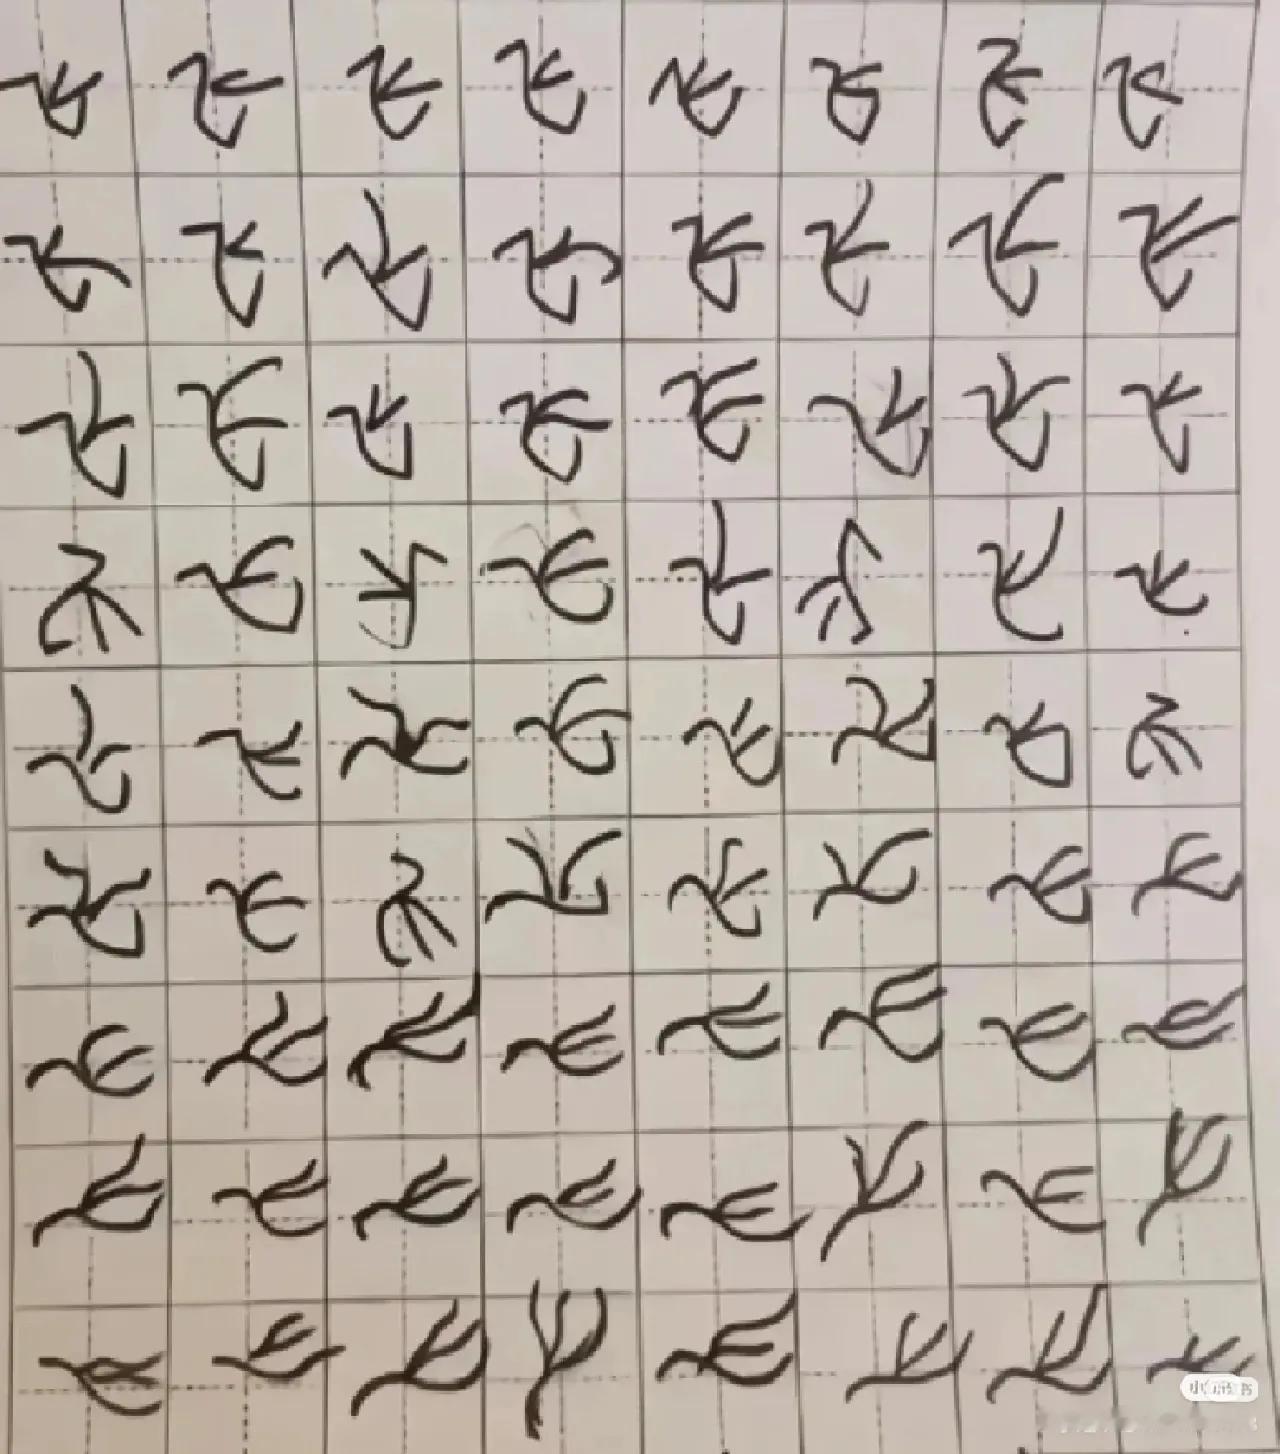 飞飞飞飞飞飞飞飞
飞飞飞飞飞飞飞飞
飞飞飞飞飞飞飞飞
飞飞飞飞飞飞飞飞
飞飞飞飞飞飞飞飞
飞飞飞飞飞飞飞飞
飞飞飞飞飞飞飞飞
飞飞飞飞飞飞飞飞
飞飞飞飞飞飞飞飞
小红书